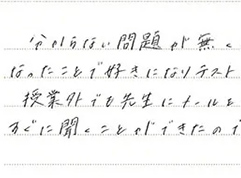 分からない問題が無く
なったことで好きになりテスト
授業外でも先生にメールを
すぐに聞くことができたので